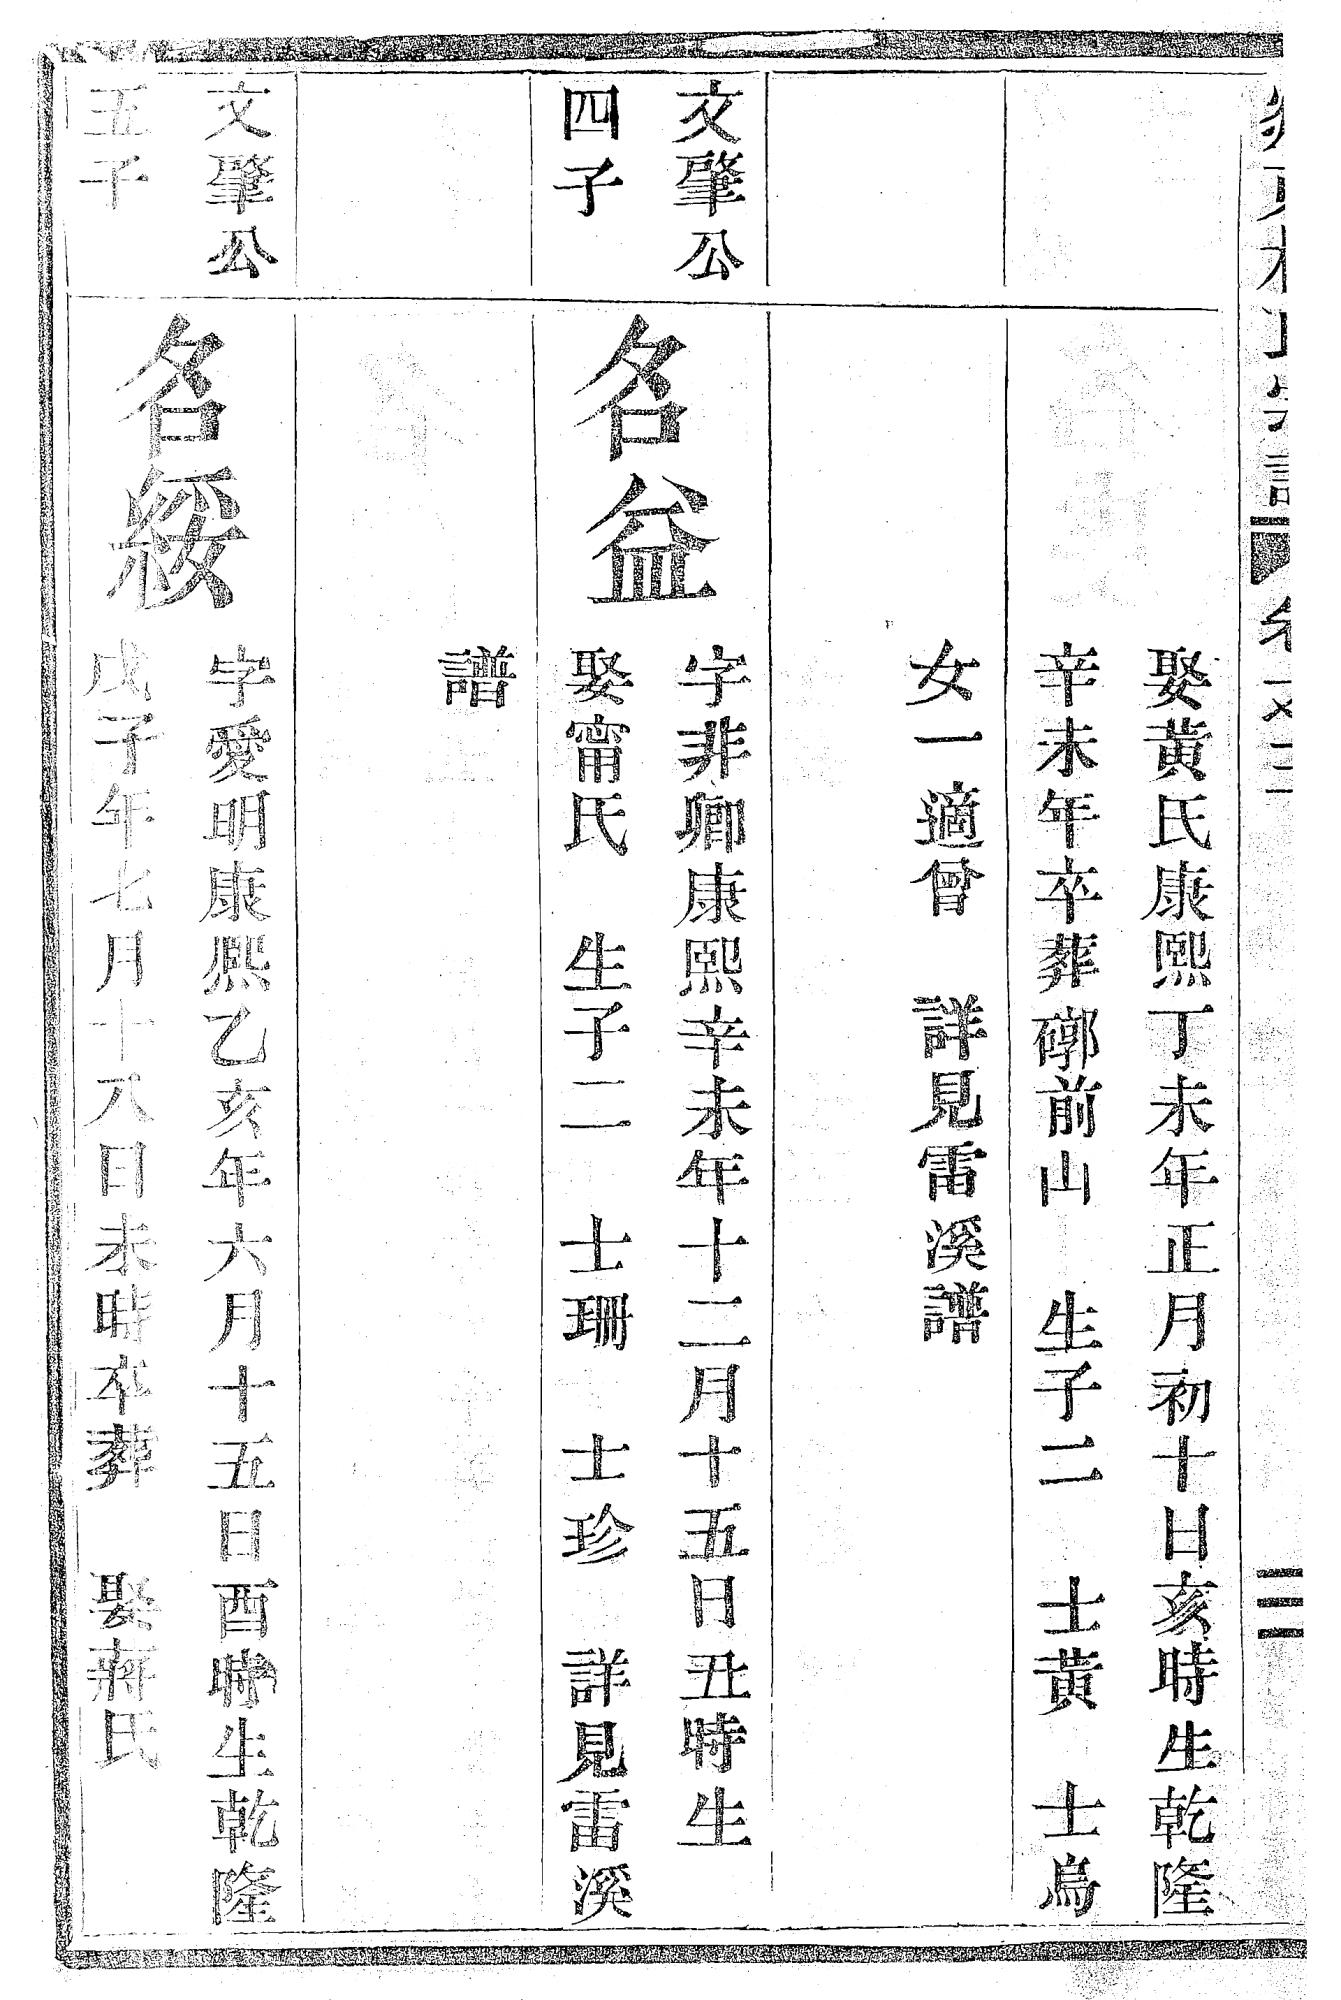 娶黃氏康熙丁未年正月初十日亥時生乾隆
辛未年卒葬𥕢前山　生子二　士黃　士烏
女一適曾　詳見雷溪譜
文肇公
四子
名益
字非卿康熙辛未年十二月十五日丑時生
娶甯氏　生子二　士珊　士珍　詳見雷溪
譜
文肇公
五子
名綏
字愛明康熙乙亥年六月十五日酉時生乾隆
戊子年七月十八日未時卒葬　娶蔣氏